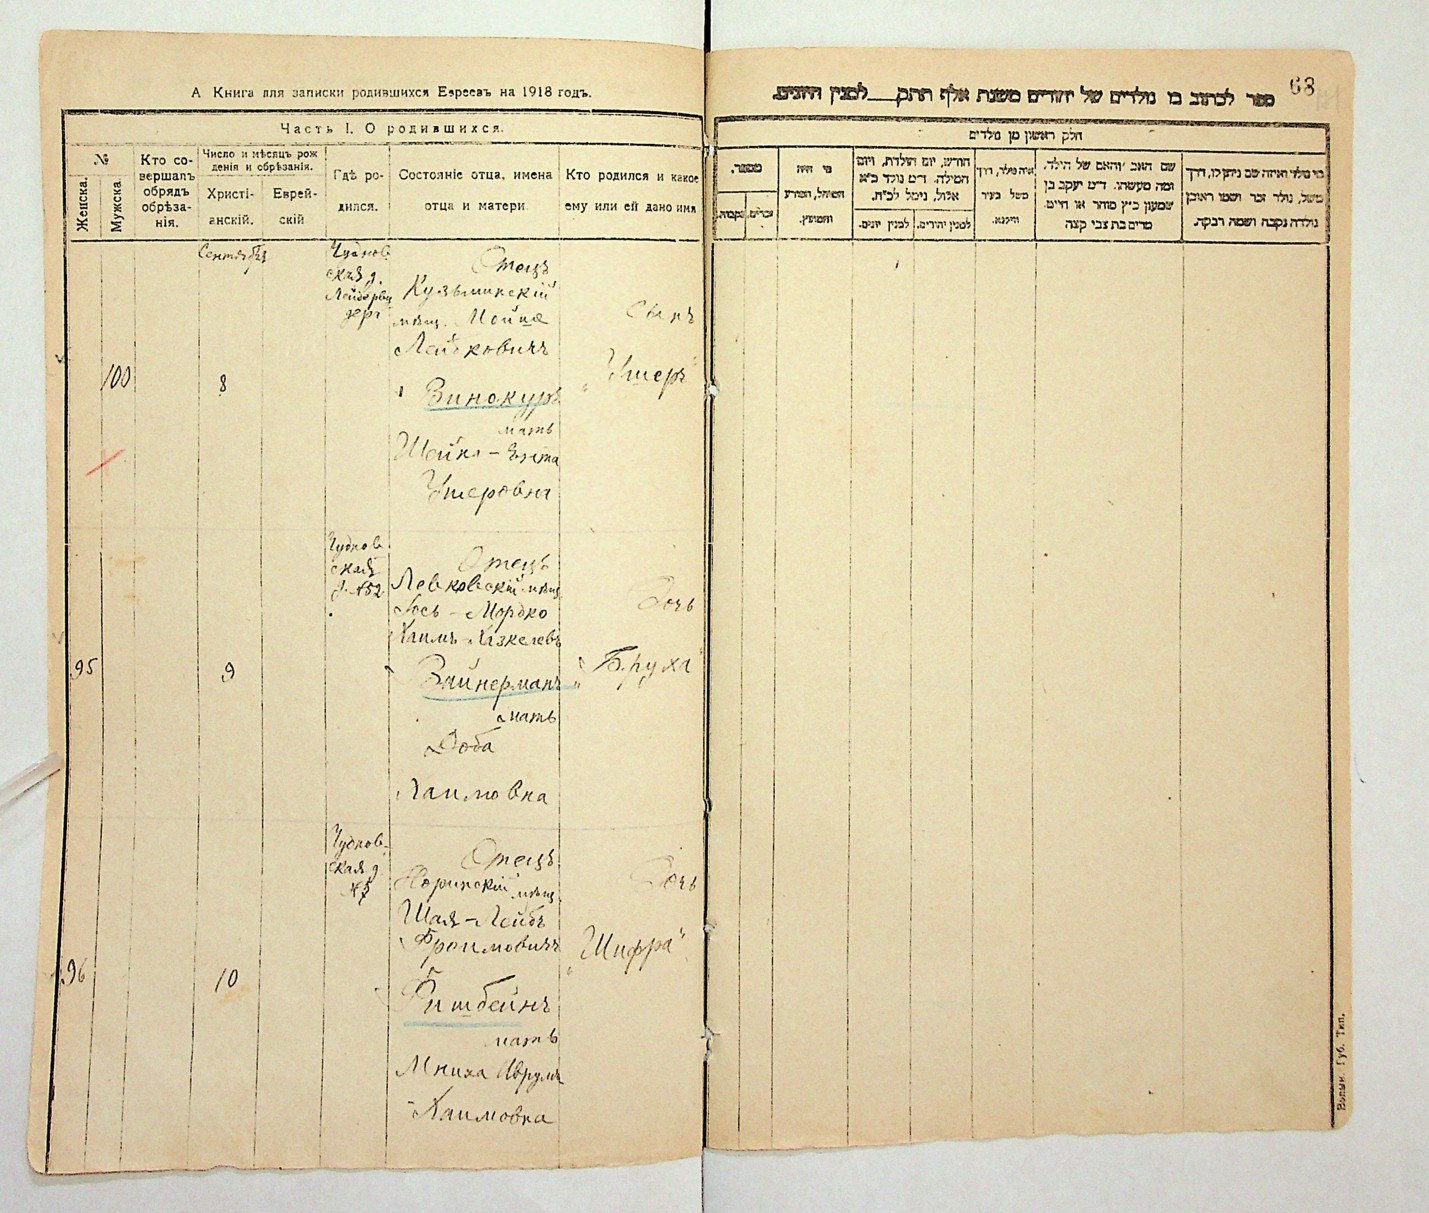 А. Книга для записки родившихся Евреевъ на 1918 годъ.
Часть I. О родившихся.
№
Женска.
Мужска.
Кто со-
вершалъ
обрядъ
обрѣза-
нія.
Число и мѣсяцъ рож
денія и обрѣзанія.
Христі-
анскій.
Еврей-
скій
Гдѣ ро-
дился.
Состояніе отца, имена
отца и матери.
Кто родился и какое
ему или ей дано имя
Сентябрь
100
8
Чуднов
ская д.
Отецъ
Кузьминскій
мѣщ. Мойше
Лейбковичъ
Винокуръ
мать
Шейна - Ента
Ушеровна
Сынъ
„Ушеръ"
95
9
Чуднов
ская
д. №52
Отецъ
Левковскій мѣщ
Іось - Мордко
Хаимъ-Хазкелевъ
Вайнерманъ
мать
Доба
Хаимовна
Дочь
„Бруха"
96
10
Чуднов-
ская д
Отецъ
Норинскій мѣщ.
Шая-Лейбъ
Фроимовичъ
Фишбейнъ
мать
Мниха Аврумъ
-Хаимовна
Дочь
„Шифра"
68
ספר לכתוב בו נולדים של יהודים משנת אלף תתק___ למנין היונים.
חלק ראשון מן נולדים
מספר.
נקבות.
זכרים.
מי היה
המוהל, הפורע
והמוצץ.
חודש, יום הולדת, ויום
המילה. ד״מ נולד כ״א
אלול, נימל לכ״ח.
למנין יונים.
למנין יהודים.
איה נולד, דרך
משל בעיר
ווילנא.
שם האב והאם של הילד.
ומה מעשהו. ד״מ יעקב בן
שמעון כ״ץ סוחר או חייט.
מרים בת צבי קצה
מי נולד ואיזה שם ניתן לו, דרך
משל, נולד זכר ושמו ראובן
נולדה נקבה ושמה רבקה.
Волын. Губ. Тип.